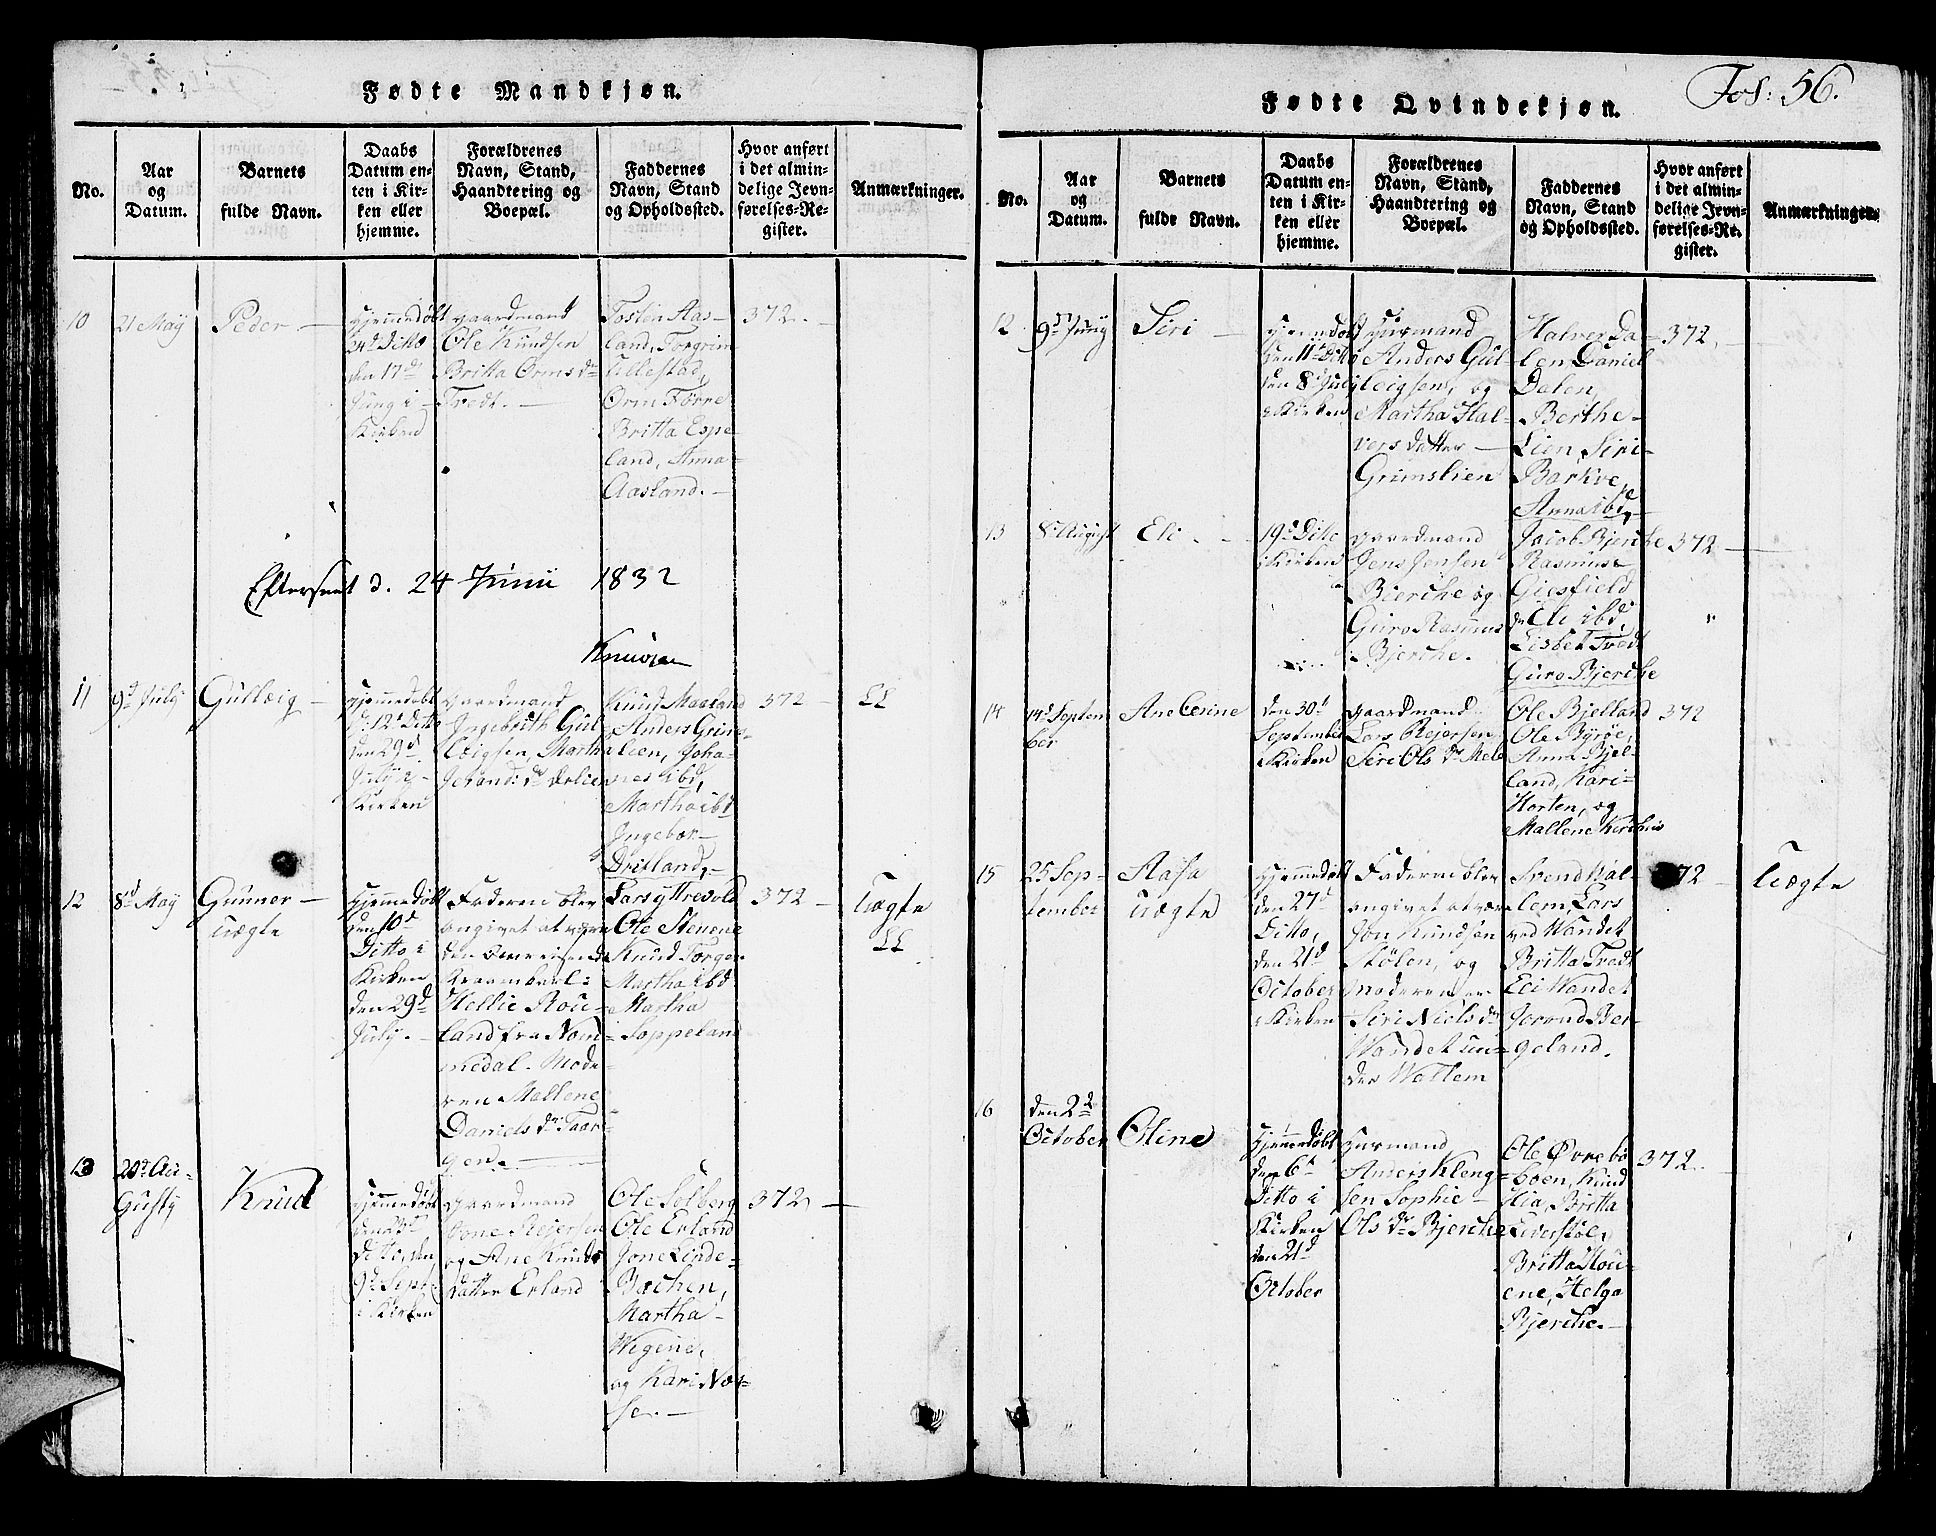 Fødte Mandkjøn.
No.
Aar
og
Datum.
Barnets
fulde Navn.
Daabs
Datum en-
ten i Kir-
ken eller
hjemme.
Forældrenes
Navn, Stand,
Haandtering og
Boepæl.
Faddernes
Navn, Stand
og Opholdssted.
Hvor anført
i det almin-
delige Jevn-
førelses-Re-
gister.
Anmærkninger.
10
21 May
Peder
hjemmedøbt
24d Ditto
den 17d
Juny i
Kirken
gaardmand
Ole Knudsen
Britta Orms dr
Tvedt.
Tosten Aas-
land, Torgrim
Tillestad,
Orm Førre
Britta Espe-
land, Anna
Aasland.
372.
Efterseet d. 24 Junii 1832
Knudsen
11
9d July
Gullæig
hjemmedøbt
d. 12d Ditto
den 29d
July i
Kirken
gaardmand
Ingebrith Gul-
læigsen, Martha
Jerand: dr
Knud Maaland
Anders Grims-
lien, Joha-
nes ibd,
Martha ibd
Ingebor
Dreland,
372
LL
12
8d May
Gunner
uægte
hjemmedøbt
den 10d
Ditto i
Kirken
den 29d
July.
Faderen blev
angivet at være
den
Hellie Rou-
land fra Nom-
medal. Mode-
ren Mallene
Daniels dr Taar-
gen.
Lars yttrevold
Ole Stenene
Knud Torger
Martha ibd
Martha
Soppeland
372
Uægte
LL
13
20d Au-
gusty
Knud
hjemmedøbt
den 23d
Ditto, den
9d Sept
i Kirken
gaardmand
Jone Rejersen
og Ane Knuds
datter Erland
Ole Solberg
Ole Erland
Jone Linde-
Bachen,
Martha
Wegene,
og Kari Næs-
se.
372
Fol: 56.
Fødte Qvindekjøn.
No.
Aar
og
Datum.
Barnets
fulde Navn.
Daabs
Datum en-
ten i Kir-
ken eller
hjemme.
Forældrenes
Navn, Stand,
Haandtering og
Boepæl.
Faddernes
Navn, Stand
og Opholdssted.
Hvor anført
i det almin-
delige Jevn-
førelses-Re-
gister.
Anmærkninger.
12
9d Juny
Siri
hjemmedøbt
den 11t Dito
den 8d July
i Kirken
Huusmand
Anders Gul-
leigsen, og
Martha Hal-
vers datter
Grimslien
Halver Da-
len Daniel
Dalen,
Berthe
Lien, Siri
Barkve,
Anna ibd,
372.
13
8d August
Eli
19d Dito
i Kirken
gaardmand
Jens Jensen
Bierche og
Guro Rasmus
Bjerche.
Jacob Bjerche
Rasmus
Giesfield
Eli ibd,
Lisbet Tvedt
Guro Bjerche
372
14
14d Septem
ber
Ane Cerine
den 30t
September
i Kirken
gaardmand
Lars Rejersen
Siri Ols dr Mele
Ole Bjelland
Ole Byrøe,
Anna Bjel-
land, Kari
Horten, og
Mallene Kirchuis
372
15
25 Sep-
tember
Aasa
uægte
hjemmedøbt
den 27d
Ditto,
den 21d
October
i Kirken
Faderen blev
angivet at være
Jon Knudsen
Stølen, og
moderen er
Siri Niels dr
Wandet un-
der Wallem
Svend Wal-
lem, Lars
ved Wandet
Britta Tvedt
Eli Wandet
Jorond Ber-
geland.
372
Uægte
16
den 2d
October
Oline
hjemmedøbt
den 6d
Ditto i
Kirken
den 21d
October
Huusmand
Anders Kleng-
sen Sophie
Ols dr Bjerche
Ole Øvrebø
boen, Knud
Hia, Britta
Liverstøl,
Britta Mou-
ene, Helga
Bjerche.
372.